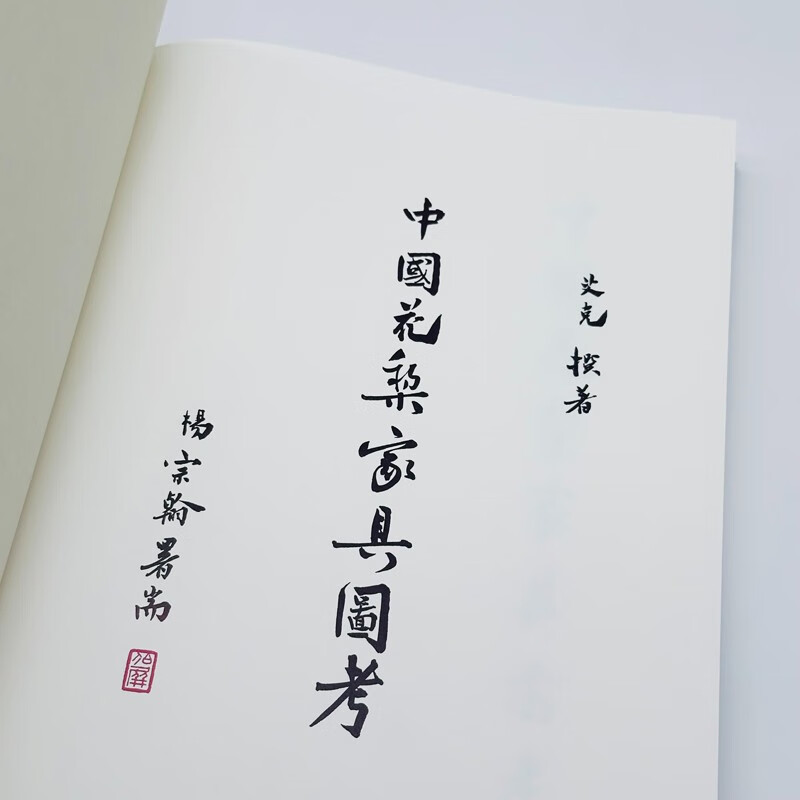 艾克 撰著
中國花梨家具圖考
楊宗翰署耑
伯屏